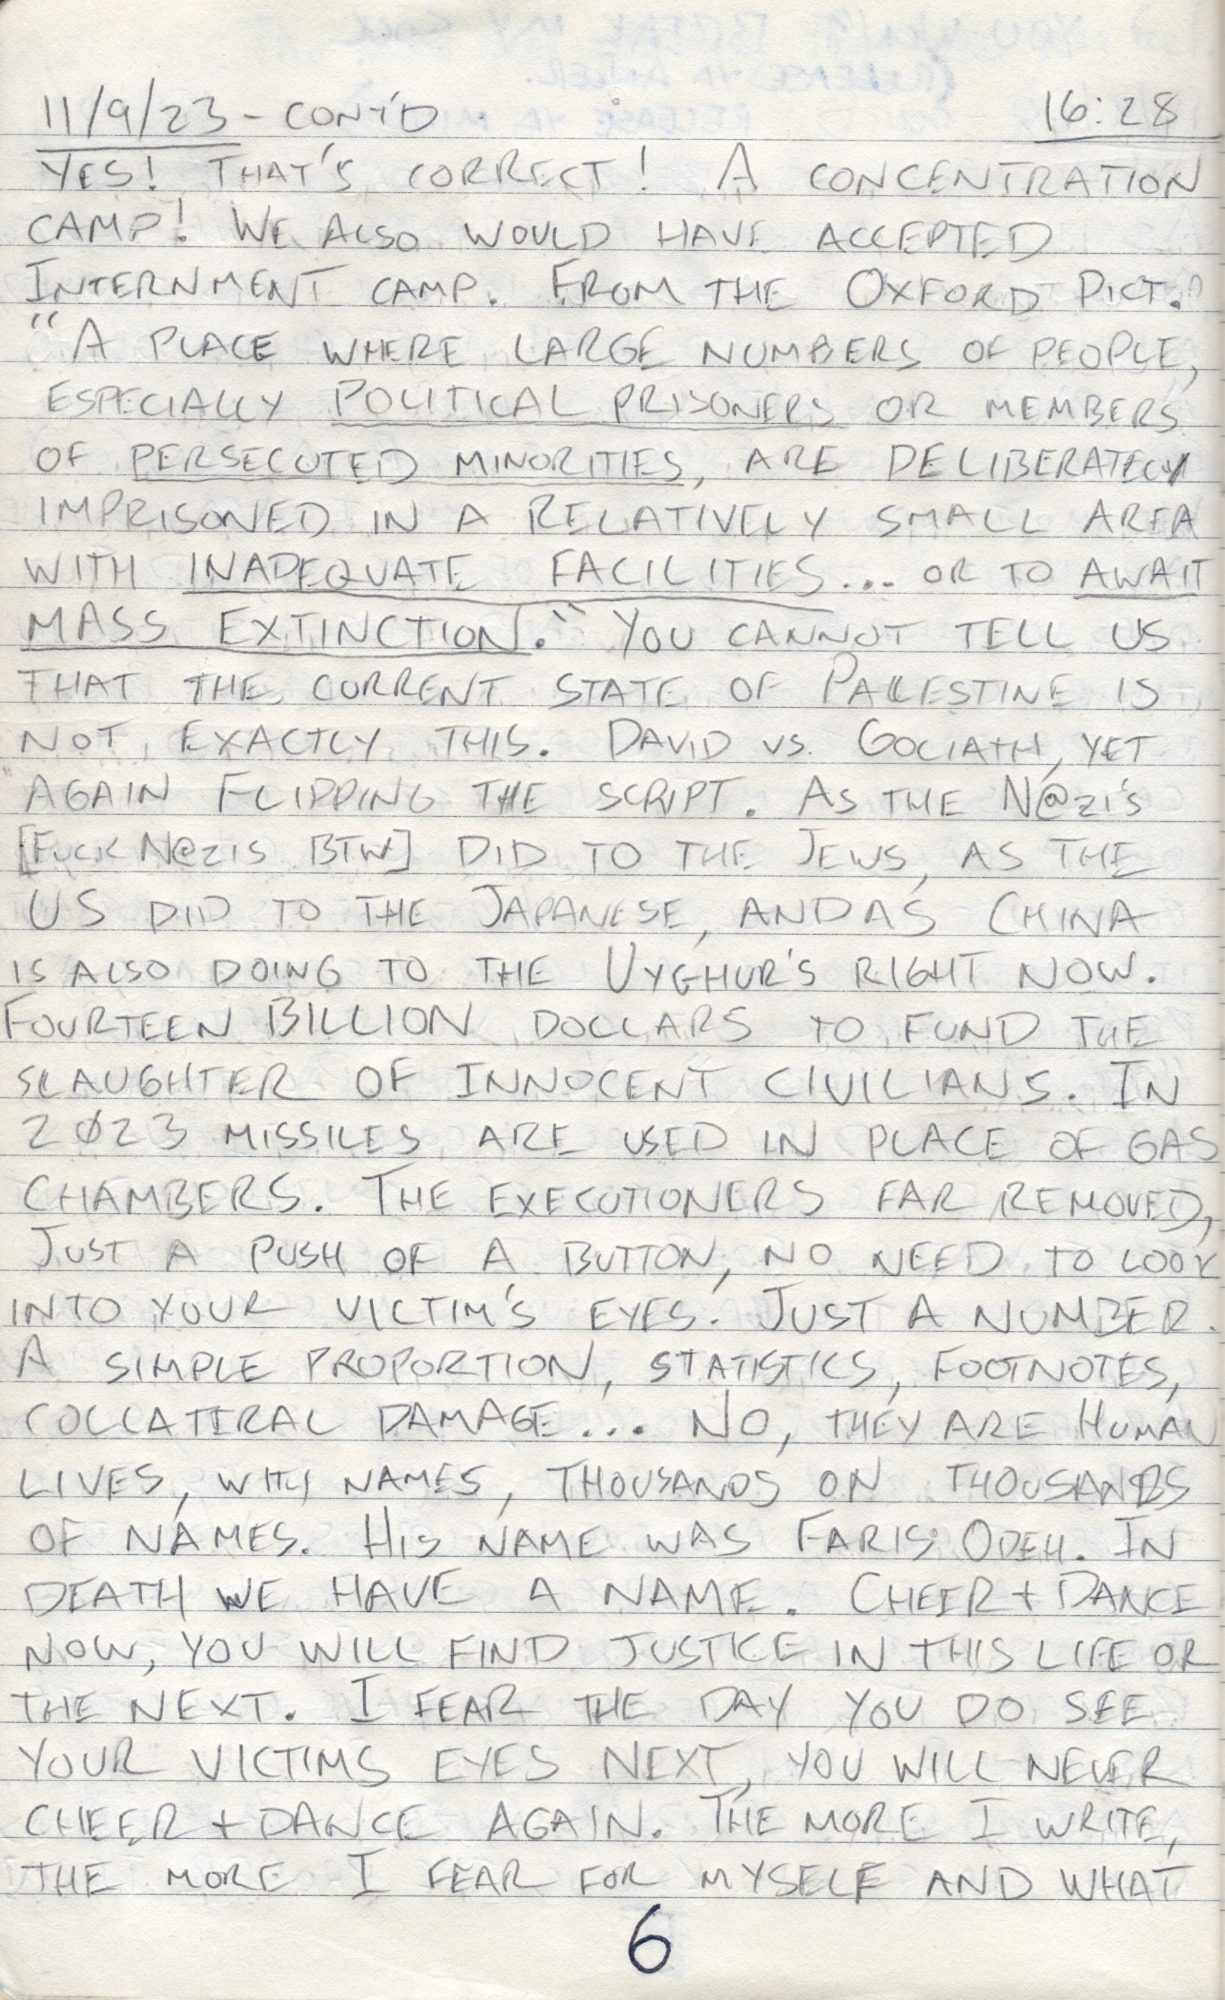 11/9/23 - CONT'D 16:28
YES! THAT'S CORRECT! A CONCENTRATION
CAMP! WE ALSO WOULD HAVE ACCEPTED
INTERNMENT CAMP. FROM THE OXFORD DICT.
"A PLACE WHERE LARGE NUMBERS OF PEOPLE,
ESPECIALLY POLITICAL PRISONERS OR MEMBERS
OF PERSECUTED MINORITIES, ARE DELIBERATELY
IMPRISONED IN A RELATIVELY SMALL AREA
WITH INADEQUATE FACILITIES... OR TO AWAIT
MASS EXTINCTION." YOU CANNOT TELL US
THAT THE CURRENT STATE OF PALESTINE IS
NOT EXACTLY THIS. DAVID VS. GOLIATH, YET
AGAIN FLIPPING THE SCRIPT. AS THE N@ZI'S
[FUCK N@ZIS BTW] DID TO THE JEWS, AS THE
US DID TO THE JAPANESE, AND AS CHINA
IS ALSO DOING TO THE UYGHUR'S RIGHT NOW.
FOURTEEN BILLION DOLLARS TO FUND THE
SLAUGHTER OF INNOCENT CIVILIANS. IN
2023 MISSILES ARE USED IN PLACE OF GAS
CHAMBERS. THE EXECUTIONERS FAR REMOVED,
JUST A PUSH OF A BUTTON, NO NEED TO LOOK
INTO YOUR VICTIM'S EYES. JUST A NUMBER.
A SIMPLE PROPORTION, STATISTICS, FOOTNOTES,
COLLATERAL DAMAGE... NO, THEY ARE HUMAN
LIVES, WITH NAMES, THOUSANDS ON THOUSANDS
OF NAMES. HIS NAME WAS FARIS ODEH. IN
DEATH WE HAVE A NAME. CHEER + DANCE
NOW, YOU WILL FIND JUSTICE IN THIS LIFE OR
THE NEXT. I FEAR THE DAY YOU DO SEE
YOUR VICTIMS EYES NEXT, YOU WILL NEVER
CHEER + DANCE AGAIN. THE MORE I WRITE,
THE MORE I FEAR FOR MYSELF AND WHAT
6